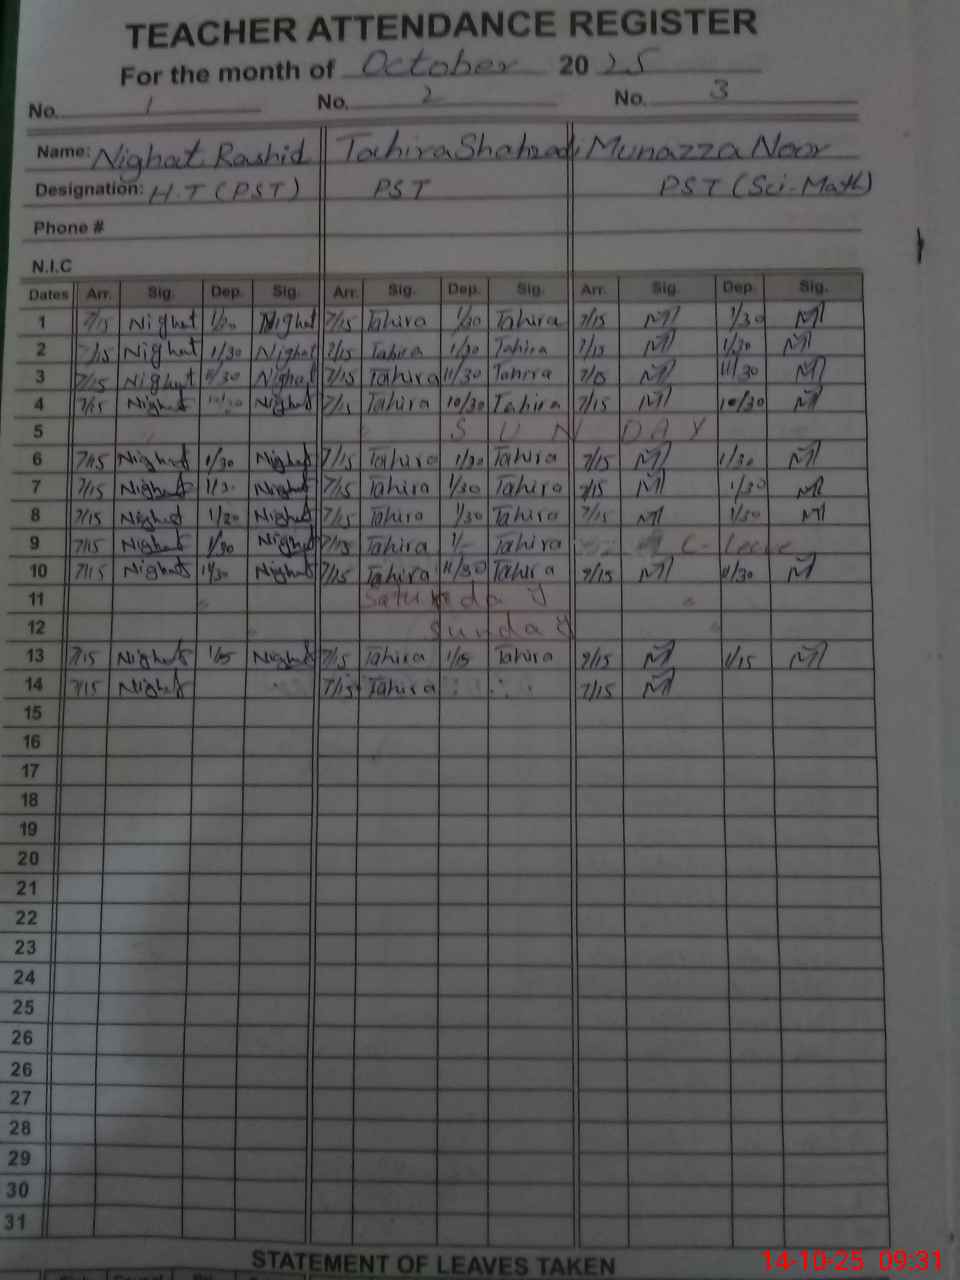 TEACHER ATTENDANCE REGISTER
For the month of October 2025
No. 1 No. 2 No. 3
Name: Nighat Rashid Tahira Shahzadi Munazza Noor
Designation: H.T (PST) PST PST (Sci-Math)
Phone #
N.I.C
Dates Arr. Sig. Dep. Sig. Arr. Sig. Dep. Sig. Arr. Sig. Dep. Sig.
1 7/15 Nighat 1/30 Nighat 7/15 Tahira 1/30 Tahira 7/15 M 1/30 M
2 7/15 Nighat 1/30 Nighat 7/15 Tahira 1/30 Tahira 7/15 M 1/30 M
3 7/15 Nighat 11/30 Nighat 7/15 Tahira 11/30 Tahira 7/15 M 11/30 M
4 7/15 Nighat 10/30 Nighat 7/15 Tahira 10/30 Tahira 7/15 M 10/30 M
5 SUNDAY
6 7/15 Nighat 1/30 Nighat 7/15 Tahira 1/30 Tahira 7/15 M 1/30 M
7 7/15 Nighat 1/30 Nighat 7/15 Tahira 1/30 Tahira 7/15 M 1/30 M
8 7/15 Nighat 1/30 Nighat 7/15 Tahira 1/30 Tahira 7/15 M 1/30 M
9 7/15 Nighat 1/30 Nighat 7/15 Tahira 1/- Tahira C-leave
10 7/15 Nighat 11/30 Nighat 7/15 Tahira 11/30 Tahira 7/15 M 11/30 M
11 Saturday
12 Sunday
13 7/15 Nighat 1/15 Nighat 7/15 Tahira 1/15 Tahira 7/15 M 1/15 M
14 7/15 Nighat 7/15 Tahira 7/15 M
15
16
17
18
19
20
21
22
23
24
25
26
26
27
28
29
30
31
STATEMENT OF LEAVES TAKEN
14-10-25 09:31